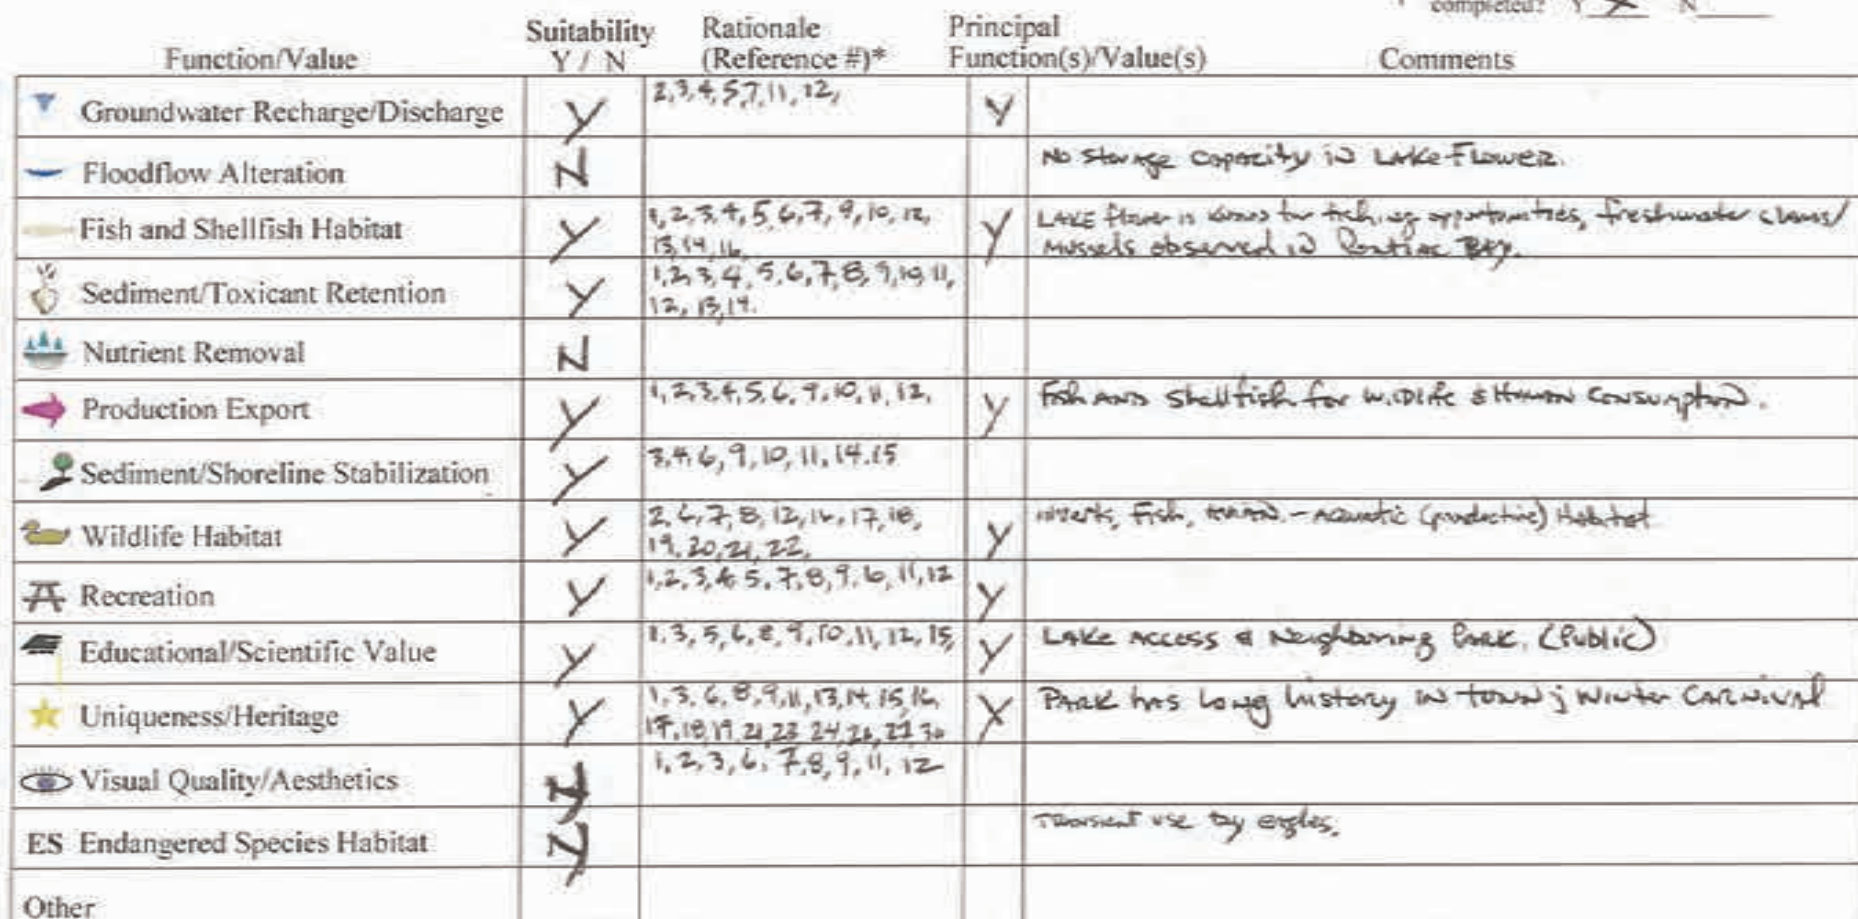 completed? Y X N
Function/Value Suitability Y / N Rationale (Reference #)* Principal Function(s)/Value(s) Comments
Groundwater Recharge/Discharge Y 2,3,4,5,7,11,12, Y
Floodflow Alteration N No storage capacity in Lake Flower.
Fish and Shellfish Habitat Y 1,2,3,4,5,6,7,9,10,12, Y Lake flower is known for fishing opportunities, freshwater clams/
13,14,16, Mussels observed in Pontiac Bay.
Sediment/Toxicant Retention Y 1,2,3,4,5,6,7,8,9,10,11,
12,13,14.
Nutrient Removal N
Production Export Y 1,2,3,4,5,6,9,10,11,12, Y Fish AND Shellfish for Wildlife & Human Consumption.
Sediment/Shoreline Stabilization Y 3,4,6,9,10,11,14.15
Wildlife Habitat Y 2,6,7,8,12,16,17,18, Y Fish, - Aquatic (productive) Habitat
19,20,21,22,
Recreation Y 1,2,3,4,5,7,8,9,10,11,12 Y
Educational/Scientific Value Y 1,3,5,6,8,9,10,11,12,15, Y Lake Access & Neighboring Park. (Public)
Uniqueness/Heritage Y 1,3,6,8,9,11,13,14,15,16, Y Park has long history in town; Winter Carnival
17,18,19,21,23,24,26,27,30
Visual Quality/Aesthetics 1,2,3,6,7,8,9,11,12
ES Endangered Species Habitat N Transient use by eagles.
Other